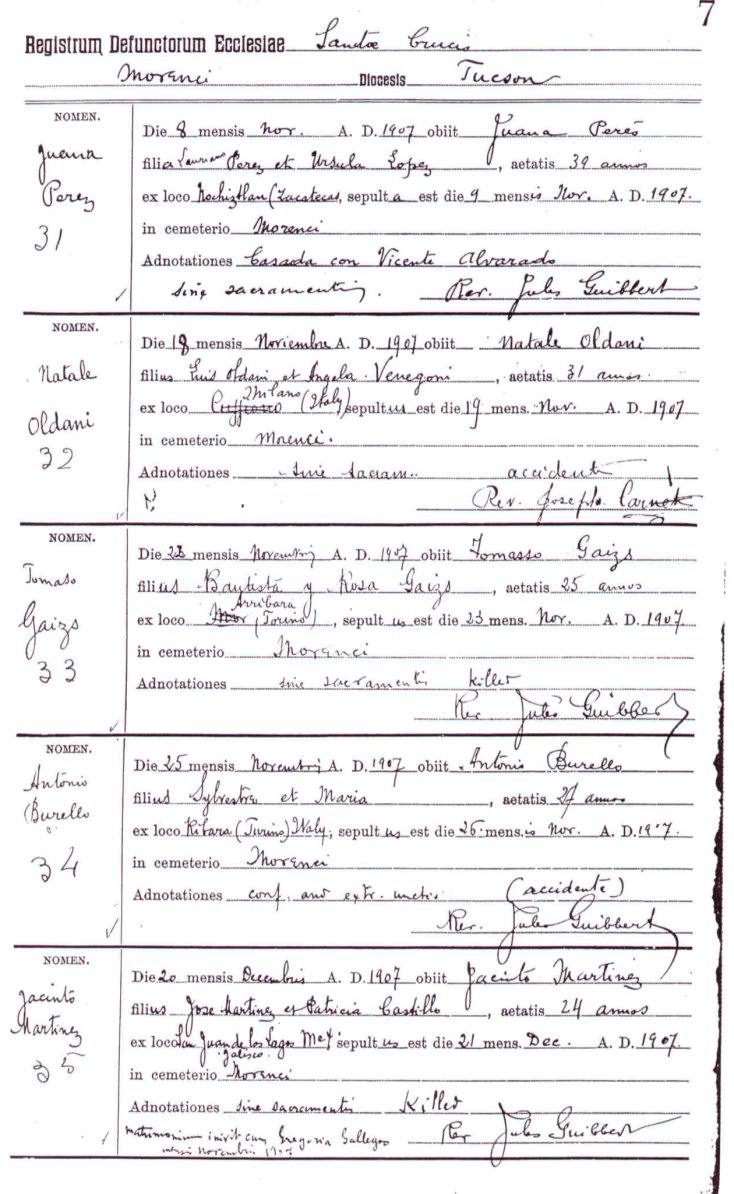 7
Registrum Defunctorum Ecclesiae Sanctæ Crucis
Morenci Diocesis Tucson
NOMEN.
Juana
Perez
31
Die 8 mensis Nov. A. D. 1907 obiit Juana Peres
filia Perez et Ursula Lopez, aetatis 39 annos
ex loco Nochiztlan (Zacatecas, sepult a est die 9 mensis Nov. A. D. 1907.
in cemeterio Morenci
Adnotationes Casada con Vicente Alvarado
sine sacramentis. Rev. Jules Guibbert
NOMEN.
Natale
Oldani
32
Die 18 mensis Noviembre A. D. 1907 obiit Natale Oldani
filius Luis Oldani et Angela Venegoni, aetatis 31 annos
ex loco Milano (Italy) sepult us est die 19 mens. Nov. A. D. 1907
in cemeterio Morenci.
Adnotationes sine sacram. accidente
Rev. Joseph Carnet
NOMEN.
Tomaso
Gaizs
33
Die mensis Novembris A. D. 1907 obiit Tomasso Gaizs
filius Bautista y Rosa Gaizs, aetatis 25 annos
ex loco Arribara (Torino), sepult us est die 23 mens. Nov. A. D. 1907
in cemeterio Morenci
Adnotationes sine sacramentis killed
Rev Jules Guibbert
NOMEN.
Antonio
Burello
34
Die 25 mensis Novembris A. D. 1907 obiit Antonio Burello
filius Sylvestre et Maria, aetatis 27 annos
ex loco Ribara (Turino) Italy, sepult us est die 26 mens. is Nov. A. D. 19'7.
in cemeterio Morenci
Adnotationes conf. and extr. (accidente)
Rev. Jules Guibbert
NOMEN.
Jacinto
Martinez
35
Die 20 mensis Decembris A. D. 1907 obiit Jacinto Martinez
filius Jose Martinez et Patricia Castillo, aetatis 24 annos
ex loco San Juan de los Lagos Mex sepult us est die 21 mens. Dec. A. D. 1907.
Jalisco.
in cemeterio Morenci
Adnotationes sine sacramentis Killed
matrimonium inivit cum Gregoria Gallegos Rev Jules Guibbert
mensis Novembris 1907